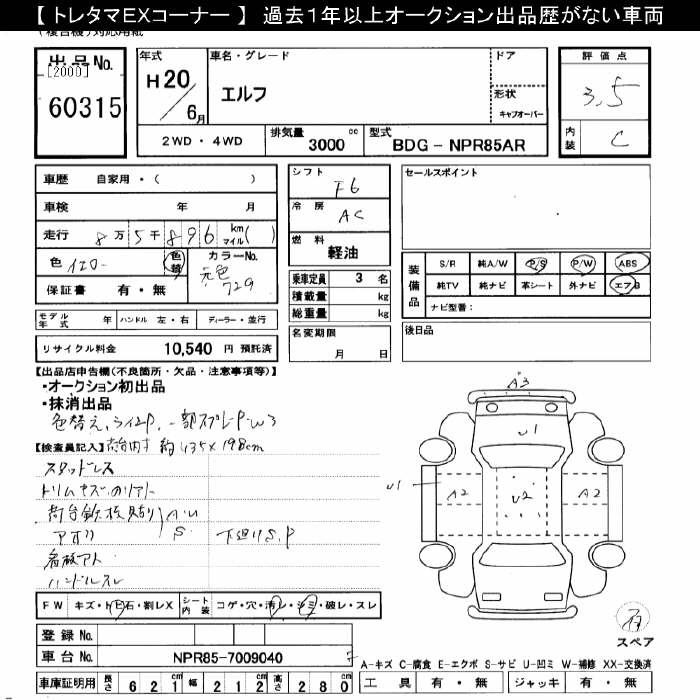 【トレタマEXコーナー】 過去1年以上オークション出品歴がない車両
出品No.
[2000]
60315
年式
H20/6月
車名・グレード
エルフ
ドア
形状
キャブオーバー
評価点
3.5
内装
C
2WD・4WD
排気量 3000 cc
型式 BDG-NPR85AR
車歴 自家用・( )
車検 年 月
走行 8万5千896 km マイル( )
色 イエロー 色替
カラーNo.
元色
729
保証書 有・無
シフト
F6
冷房
AC
燃料
軽油
乗車定員 3 名
積載量 kg
総重量 kg
名変期限
月 日
セールスポイント
装備品
S/R 純A/W P/S P/W ABS
純TV 純ナビ 革シート 外ナビ エアB
ナビ型番:
後日品
モデル年式 年 ハンドル 左・右 ディーラー・並行
リサイクル料金 10,540 円 預託済
【出品店申告欄(不良箇所・欠品・注意事項等)】
・オークション初出品
・抹消出品
色替え、
【検査員記入】 荷台内寸 約435×198cm
スタッドレス
荷台鉄板貼り A.U
アオリ S.
下廻りS.P
看板アト
ハンドルスレ
A3
U1
U1
A2
U2
A2
FW キズ・ヒ・石・割レX
シート内装 コゲ・穴・汚レ・シミ・破レ・スレ
登録No.
車台No. NPR85-7009040
車庫証明用 長さ 621 cm 幅 212 cm 高さ 280 cm
有
スペア
A-キズ C-腐食 E-エクボ S-サビ U-凹ミ W-補修 XX-交換済
工具 有・無 ジャッキ 有・無